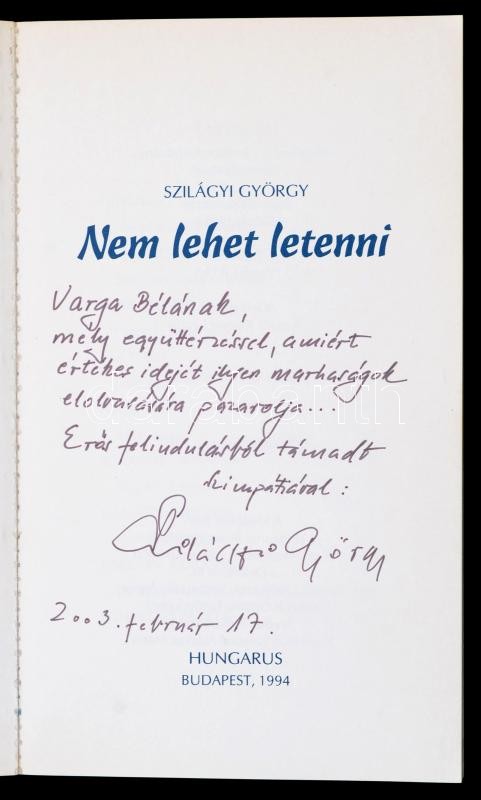 SZILÁGYI GYÖRGY
Nem lehet letenni
Varga Bélának,
mély együttérzéssel, amiért
értékes idejét ilyen marhaságok
elolvasására pazarolja...
Erős felindulásból támadt
szimpátiával:
Szilágyi György
2003. február 17.
HUNGARUS
BUDAPEST, 1994
darabanth